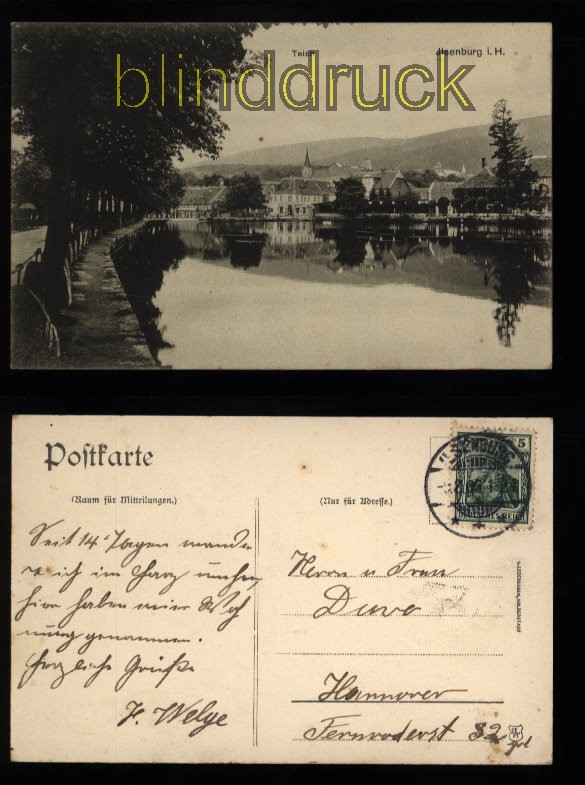 Teich
Ilsenburg i. H.
blinddruck
Postkarte
5
(Raum für Mitteilungen.)
(Nur für Adresse.)
Seit 14 Tagen wande-
re ich im Harz umher,
hier haben wir Woh
nung genommen.
Herzliche Grüße
F. Welge
Herrn u Frau
Duwe
Hannover
Fernroderstr 32